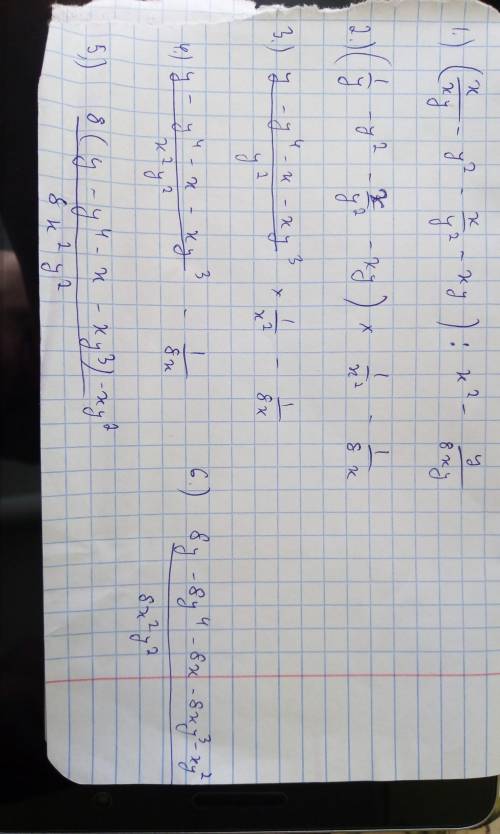 1.) (x/xy - y² - x/y² - xy) : x² - y/8xy
2.) (1/y - y² - x/y² - xy) × 1/x² - 1/8x
3.) (y - y⁴ - x - xy³)/y² × 1/x² - 1/8x
4.) (y - y⁴ - x - xy³)/x²y² - 1/8x
5.) (8(y - y⁴ - x - xy³) - xy²)/8x²y²
6.) (8y - 8y⁴ - 8x - 8xy³ - xy²)/8x²y²